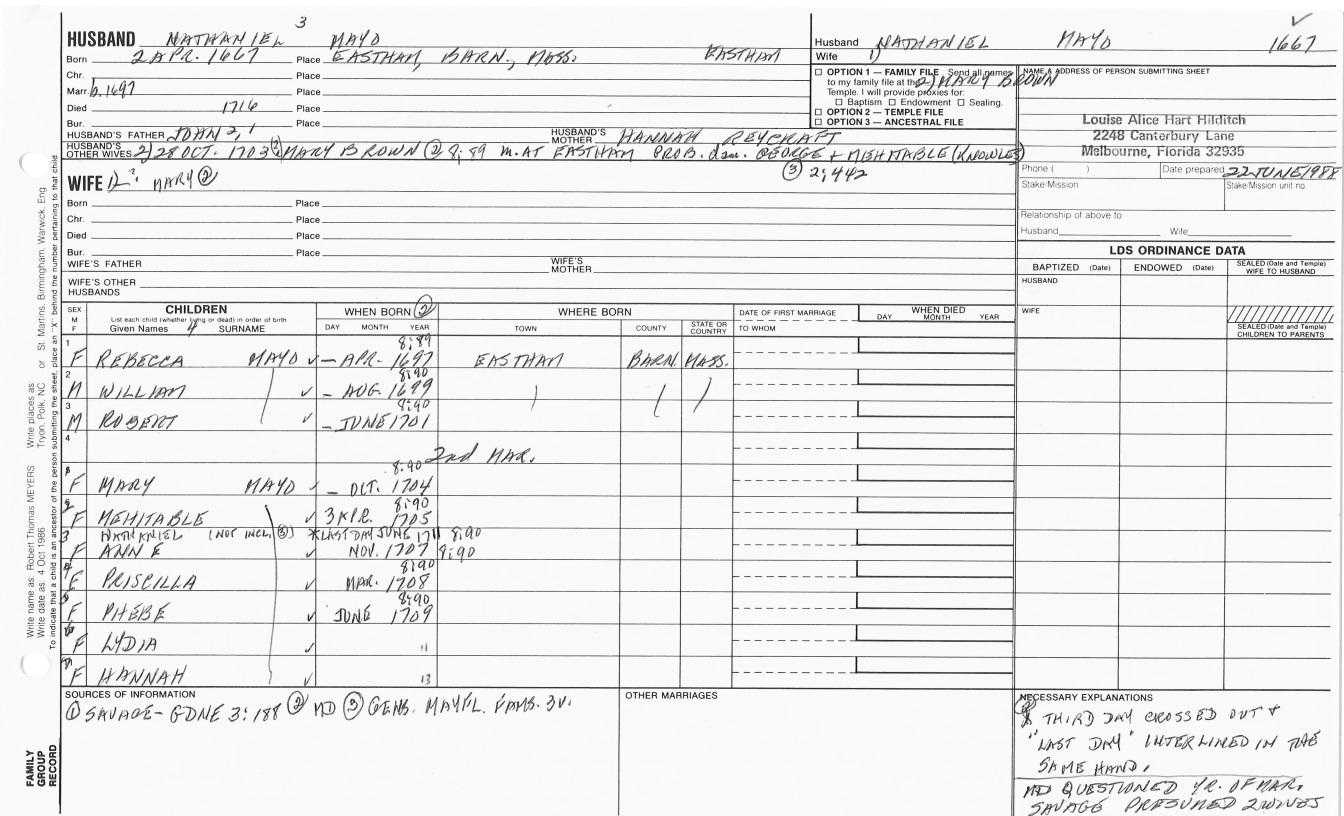 3
HUSBAND NATHANIEL MAYO
Born 2 APR. 1667 Place EASTHAM, BARN., MASS. EASTHAM
Chr. Place
Marr. b. 1697 Place
Died 1716 Place
Bur. Place
HUSBAND'S FATHER JOHN 2, 1 HUSBAND'S MOTHER HANNAH REYCRAFT
HUSBAND'S OTHER WIVES 2) 28 OCT. 1703 ② MARY BROWN ② 8;89 M. AT EASTHAM PROB. dau. GEORGE + MEHITABLE (KNOWLES)
③ 2;442
WIFE 1) MARY ②
Born Place
Chr. Place
Died Place
Bur. Place
WIFE'S FATHER WIFE'S MOTHER
WIFE'S OTHER HUSBANDS
Husband NATHANIEL MAYO 1667
Wife 1)
2) MARY BROWN
☐ OPTION 1 — FAMILY FILE Send all names
to my family file at the
Temple. I will provide proxies for:
☐ Baptism ☐ Endowment ☐ Sealing.
☐ OPTION 2 — TEMPLE FILE
☐ OPTION 3 — ANCESTRAL FILE
NAME & ADDRESS OF PERSON SUBMITTING SHEET
Louise Alice Hart Hilditch
2248 Canterbury Lane
Melbourne, Florida 32935
Phone ( ) Date prepared 22 JUNE 1988
Stake/Mission Stake/Mission unit no.
Relationship of above to
Husband Wife
LDS ORDINANCE DATA
BAPTIZED (Date) ENDOWED (Date) SEALED (Date and Temple) WIFE TO HUSBAND
HUSBAND
WIFE
SEALED (Date and Temple) CHILDREN TO PARENTS
SEX M F
CHILDREN
List each child (whether living or dead) in order of birth
Given Names 4 SURNAME
WHEN BORN ②
DAY MONTH YEAR
WHERE BORN
TOWN COUNTY STATE OR COUNTRY
DATE OF FIRST MARRIAGE
TO WHOM
WHEN DIED
DAY MONTH YEAR
8;89
1 F REBECCA MAYO ✓ — APR. 1697 EASTHAM BARN. MASS.
8;90
2 M WILLIAM ✓ — AUG. 1699
8;90
3 M ROBERT ✓ — JUNE 1701
4
2nd MAR.
8;90
F MARY MAYO ✓ — OCT. 1704
8;90
2 F MEHITABLE ✓ 3 APR. 1705
3 NATHANIEL (NOT INCL. ③) * LAST DAY JUNE 1711 8;90
F ANN E ✓ NOV. 1707 8;90
8;90
F PRISCILLA ✓ MAR. 1708
8;90
F PHEBE ✓ JUNE 1709
6 F LYDIA ✓ 11
7 F HANNAH ✓ 13
SOURCES OF INFORMATION
① SAVAGE - GDNE 3:188 ② MD ③ GENS. MAYFL. FAMS. 3v.
OTHER MARRIAGES
NECESSARY EXPLANATIONS
* THIRD DAY CROSSED OUT +
"LAST DAY" INTERLINED IN THE
SAME HAND.
MD QUESTIONED YR. OF MAR.
SAVAGE PRESUMED 2 WIVES
Write name as: Robert Thomas MEYERS Write places as: Tryon, Polk, NC or St. Martins, Birmingham, Warwick, Eng.
Write date as: 4 Oct 1986
To indicate that a child is an ancestor of the person submitting the sheet, place an "X" behind the number pertaining to that child
FAMILY GROUP RECORD